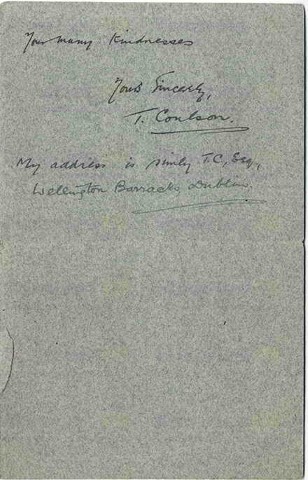 Your many kindnesses
Yours Sincerely,
T. Coulson.
My address is simly T.C, Esq.,
Wellington Barracks, Dublin.